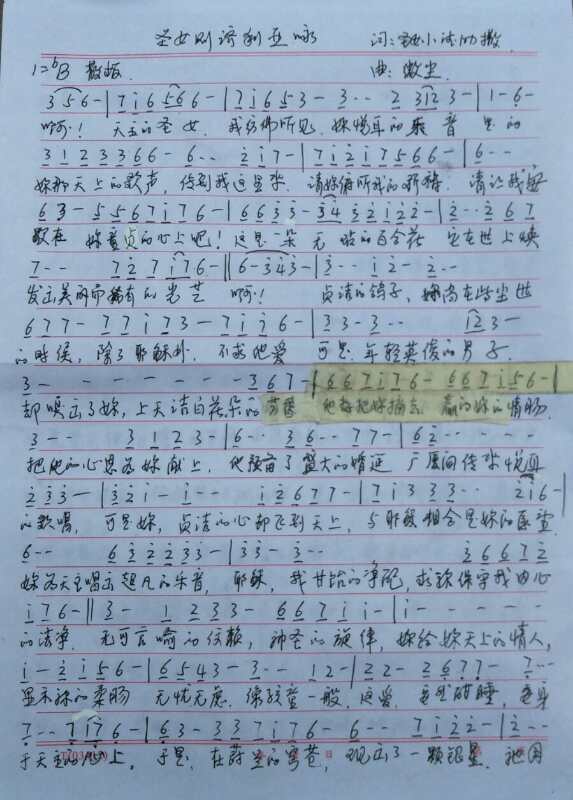 圣女则济利亚咏 词:圣女小德肋撒
1=bB 散板 曲:微尘
3 5 6 - | 7 i 6 5 6 6 - | 7 i 6 5 3 - 3 - - 2 3 1 2 3 - | 1 - 6 -
啊! 天上的圣女, 我彷彿听见, 妳悦耳的乐音 是的
3 1 2 3 3 6 6 - 6 - - 2 i 7 - | 7 i 2 i 7 5 6 6 - | 6 - -
妳那天上的歌声, 传到我这里来. 请妳俯听我的祈祷. 请让我安
6 3 - 5 5 6 7 i 7 6 - | 6 6 3 3 - 3 4 3 2 1 2 2 - | 2 - - 2 6 7
歇在 妳童贞的心上吧! 这是一朵 无玷的百合花 它在世上焕
7 - - 7 2 7 i 7 6 - || 6 - 3 4 3 - | 3 - - i 2 - 2 - -
发出美丽而稀有的光芒 啊! 贞洁的鸽子, 妳尚在此尘世
6 7 7 - 7 7 i 7 3 - 7 i 7 6 - | 3 3 - 3 - - i 2 3 -
的时侯, 除了耶稣外, 不求他爱 可是 年轻英俊的男子
3 - - - - - - - - 3 6 7 - | 6 6 7 i 7 6 - 6 6 7 i 5 6 - |
却嗅出了妳, 上天洁白花朵的芬芳 他想把妳摘去 赢得妳的情肠
3 - - 3 1 2 3 - | 6 - - 3 6 - - 7 7 - | 6 2 - - - -
把他的心思为妳献上, 他预备了盛大的婚筵 广厦间传来悦耳
2 3 3 - | 3 2 i - i - - i 2 6 7 7 - | 7 i 3 3 3 - - 2 i 6 - |
的歌唱, 可是妳, 贞洁的心却飞到天上, 与耶稣相会是妳的愿望
6 - - 6 3 2 2 3 3 - | 3 3 - 3 - - 3 6 6 7 2
妳为天主唱出超凡的乐音, 耶稣, 我甘饴的净配, 求祢保守我内心
i 7 6 - || 3 - 1 2 3 3 - 6 6 7 i i - | i - - - - -
的洁净. 无可言喻的依赖, 神圣的旋律, 妳给妳天上的情人,
i - 2 i 5 6 - | 6 5 4 3 - 3 - - 1 2 - | 2 2 - 2 6 7 7 - 7 - -
显示妳的柔肠 无忧无虑. 像孩童一般, 这爱,
7 - - 7 i 7 6 - | 6 3 - 3 3 7 i 7 6 - 6 - - 7 i 2 2 - | 2 - -
于天主的心上, 于是, 在蔚蓝的穹苍, 现出了一颗银星. 祂因